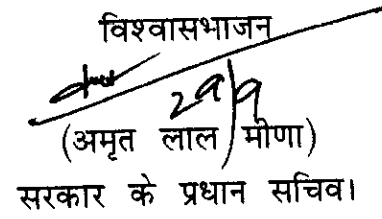 विश्वासभाजन
29/9
(अमृत लाल मीणा)
सरकार के प्रधान सचिव।